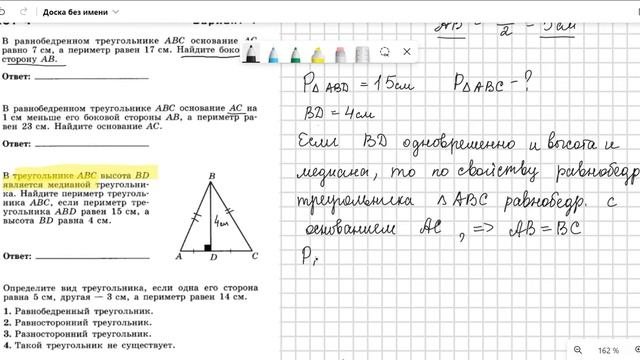 Доска без имени
В равнобедренном треугольнике ABC основание AC
равно 7 см, а периметр равен 17 см. Найдите боко
сторону AB.
Ответ:
В равнобедренном треугольнике ABC основание AC на
1 см меньше его боковой стороны AB, а периметр ра-
вен 23 см. Найдите основание AC.
Ответ:
В треугольнике ABC высота BD
является медианой треугольни-
ка. Найдите периметр треуголь-
ника ABC, если периметр тре-
угольника ABD равен 15 см, а
высота BD равна 4 см.
Ответ:
B
4см
A
D
C
Определите вид треугольника, если одна его сторона
равна 5 см, другая — 3 см, а периметр равен 14 см.
1. Равнобедренный треугольник.
2. Равносторонний треугольник.
3. Разносторонний треугольник.
4. Такой треугольник не существует.
P△ABD = 15см P△ABC - ?
BD = 4см
Если BD одновременно и высота и
медиана, то по свойству равнобедр
треугольника △ABC равнобедр. с
основанием AC, => AB = BC
P
162 %